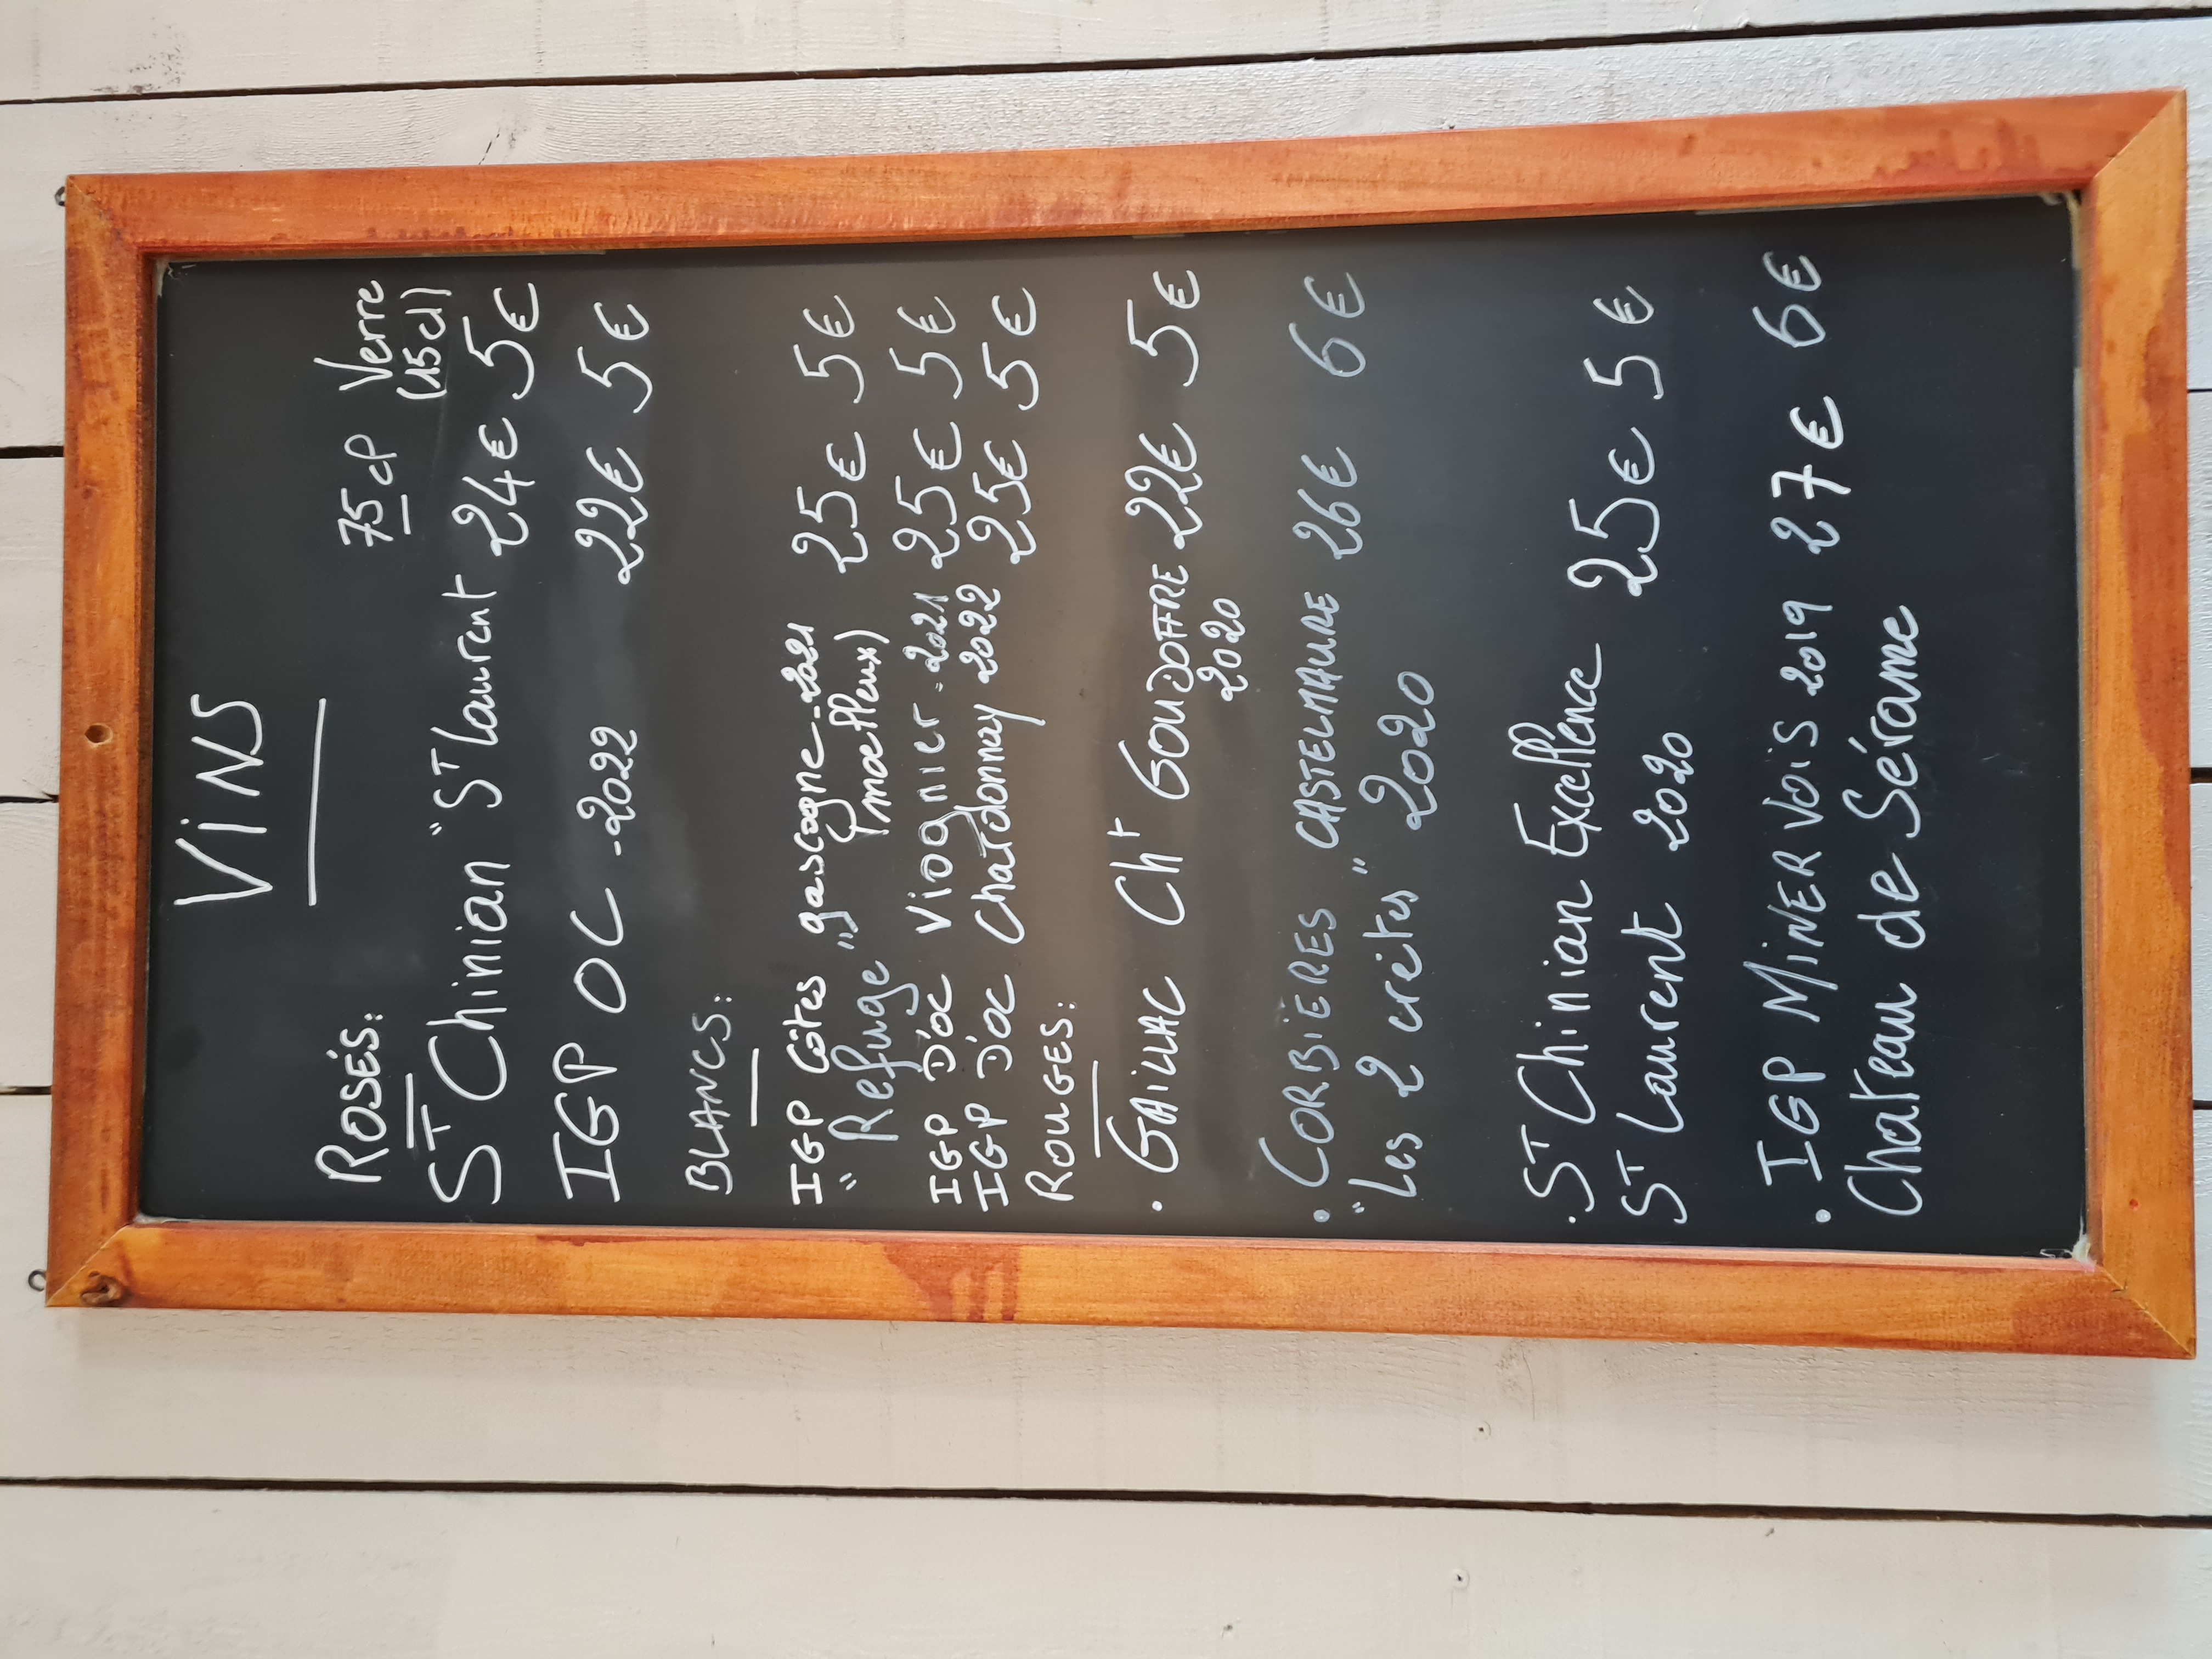 ViNS
75 cl Verre
ROSÉS: (15cl)
ST Chinian "ST Laurent 24€ 5€
IGP OC -2022 22€ 5€
BLANCS:
IGP Côtes gascogne-2021 25€ 5€
"Refuge" (moelleux)
IGP D'OC Viognier-2021 25€ 5€
IGP D'OC Chardonnay 2022 25€ 5€
ROUGES:
• GAiLLAC Cht GOUDOFFRE 22€ 5€
2020
• CORBiERES CASTELMAURE 26€ 6€
"Les 2 crêtes" 2020
• ST Chinian Excellence 25€ 5€
ST Laurent 2020
• IGP MiNERVOiS 2019 27€ 6€
Chateau de Sérame